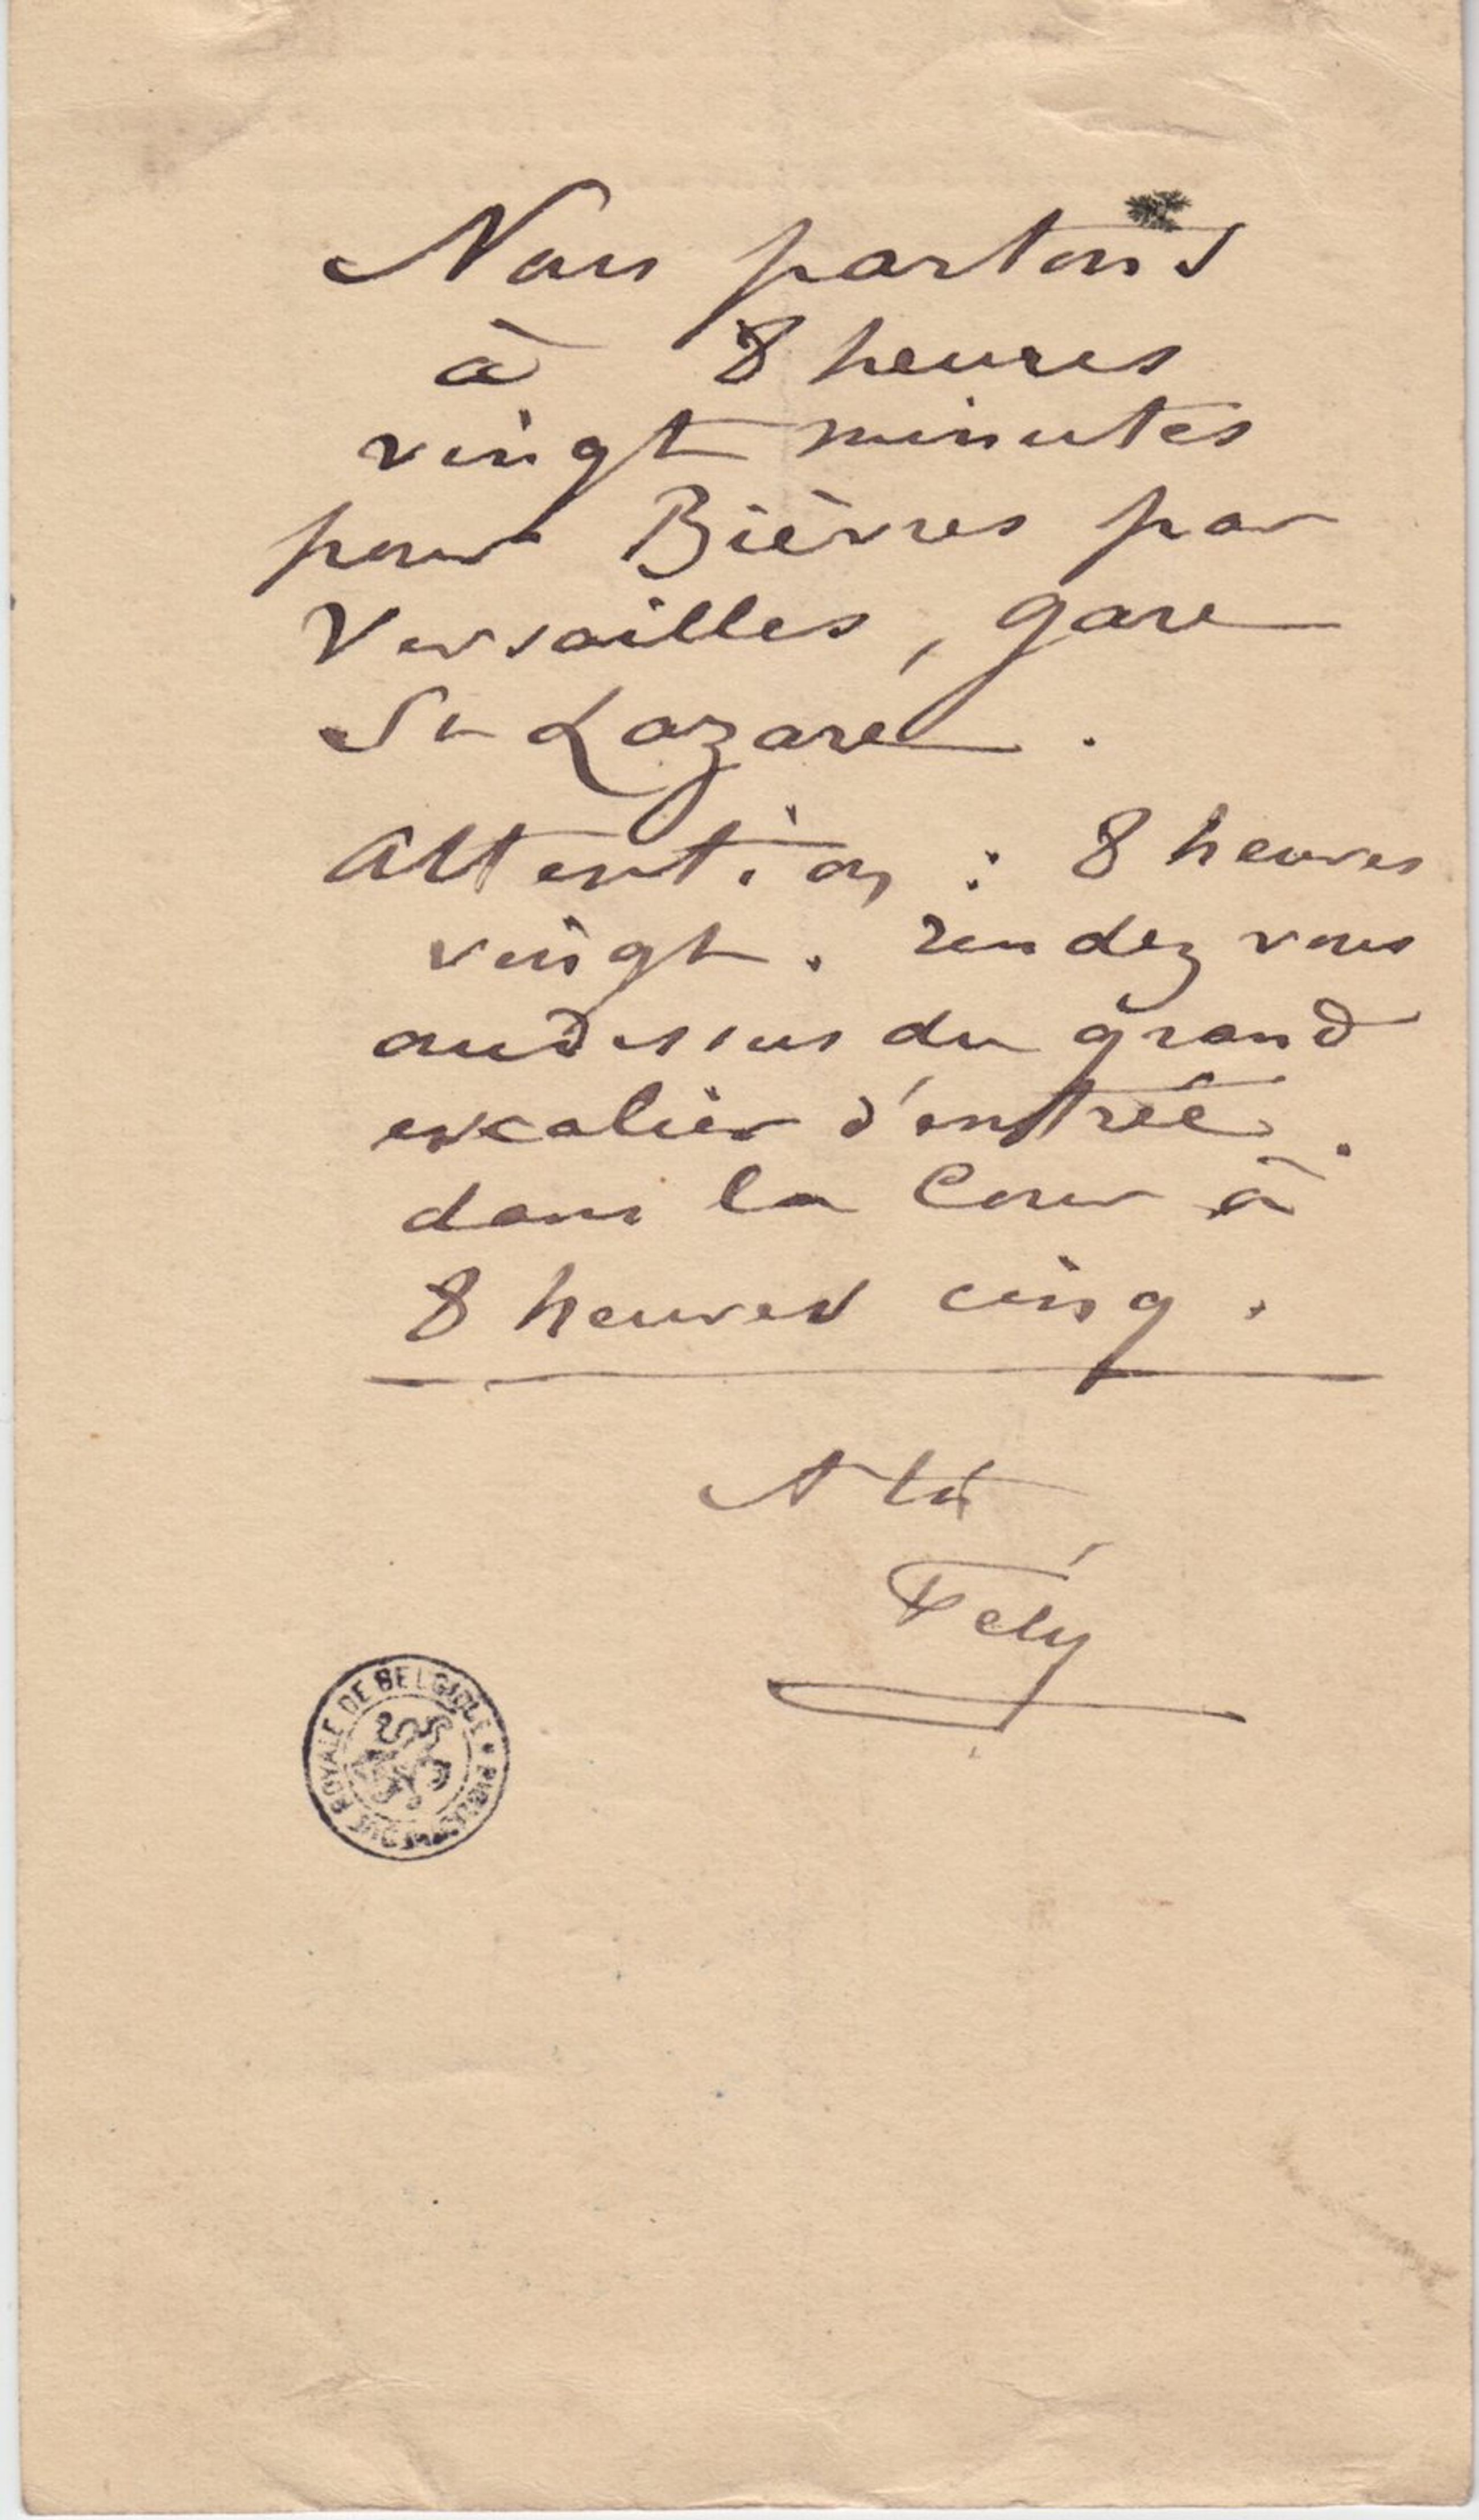 Nous partons
à 8 heures
vingt minutes
pour Bièvres par
Versailles, gare
St Lazare.
Attention : 8 heures
vingt. rendez vous
audessus du grand
escalier d'entrée.
dans la Cour à
8 heures cinq.
A toi
Fély
BIBLIOTHÈQUE ROYALE DE BELGIQUE *